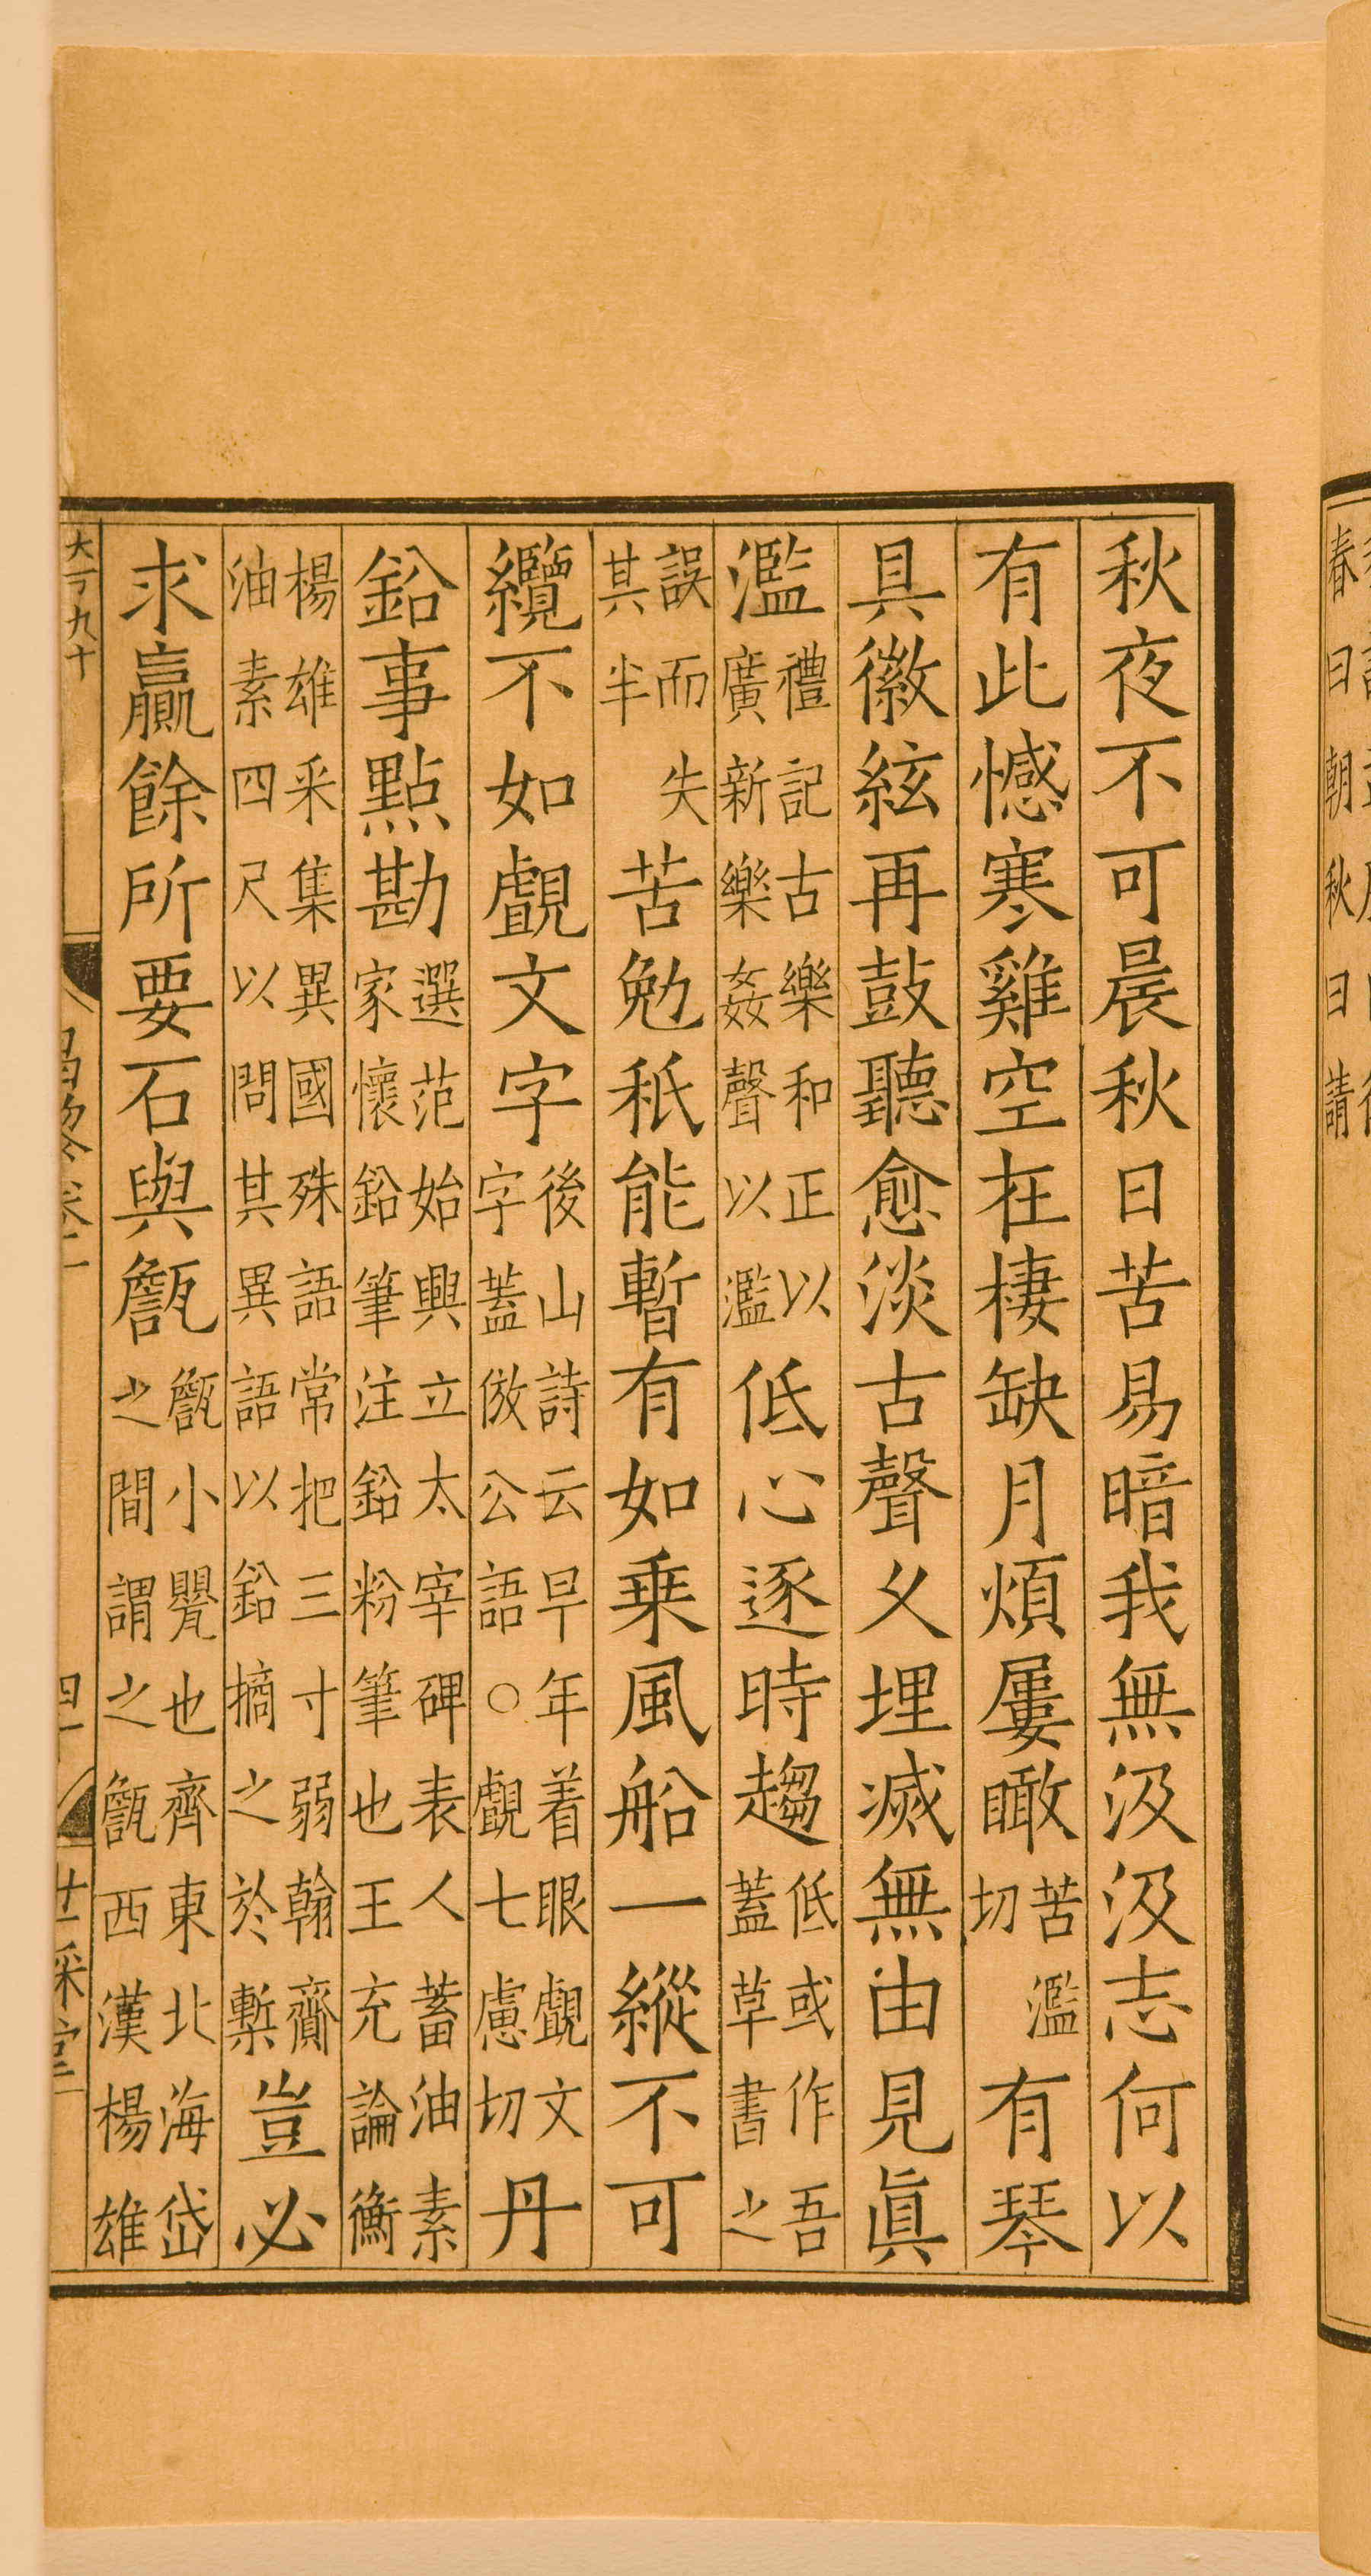 秋夜不可晨秋日苦易暗我無汲汲志何以
有此憾寒雞空在棲缺月煩屢瞰苦濫切有琴
具徽絃再鼓聽愈淡古聲久埋滅無由見眞
濫禮記古樂和正以廣新樂姦聲以濫低心逐時趨低或作吾蓋草書之
誤而失其半苦勉秖能暫有如乗風船一縱不可
纜不如覷文字後山詩云早年着眼覷文字蓋倣公語○覷七慮切丹
鉛事點勘選范始興立太宰碑表人蓄油素家懷鉛筆注鉛粉筆也王充論衡
楊雄采集異國殊語常把三寸弱翰齎油素四尺以問其異語以鉛摘之於槧豈必
求贏餘所要石與甔甔小甖也齊東北海岱之間謂之甔西漢楊雄